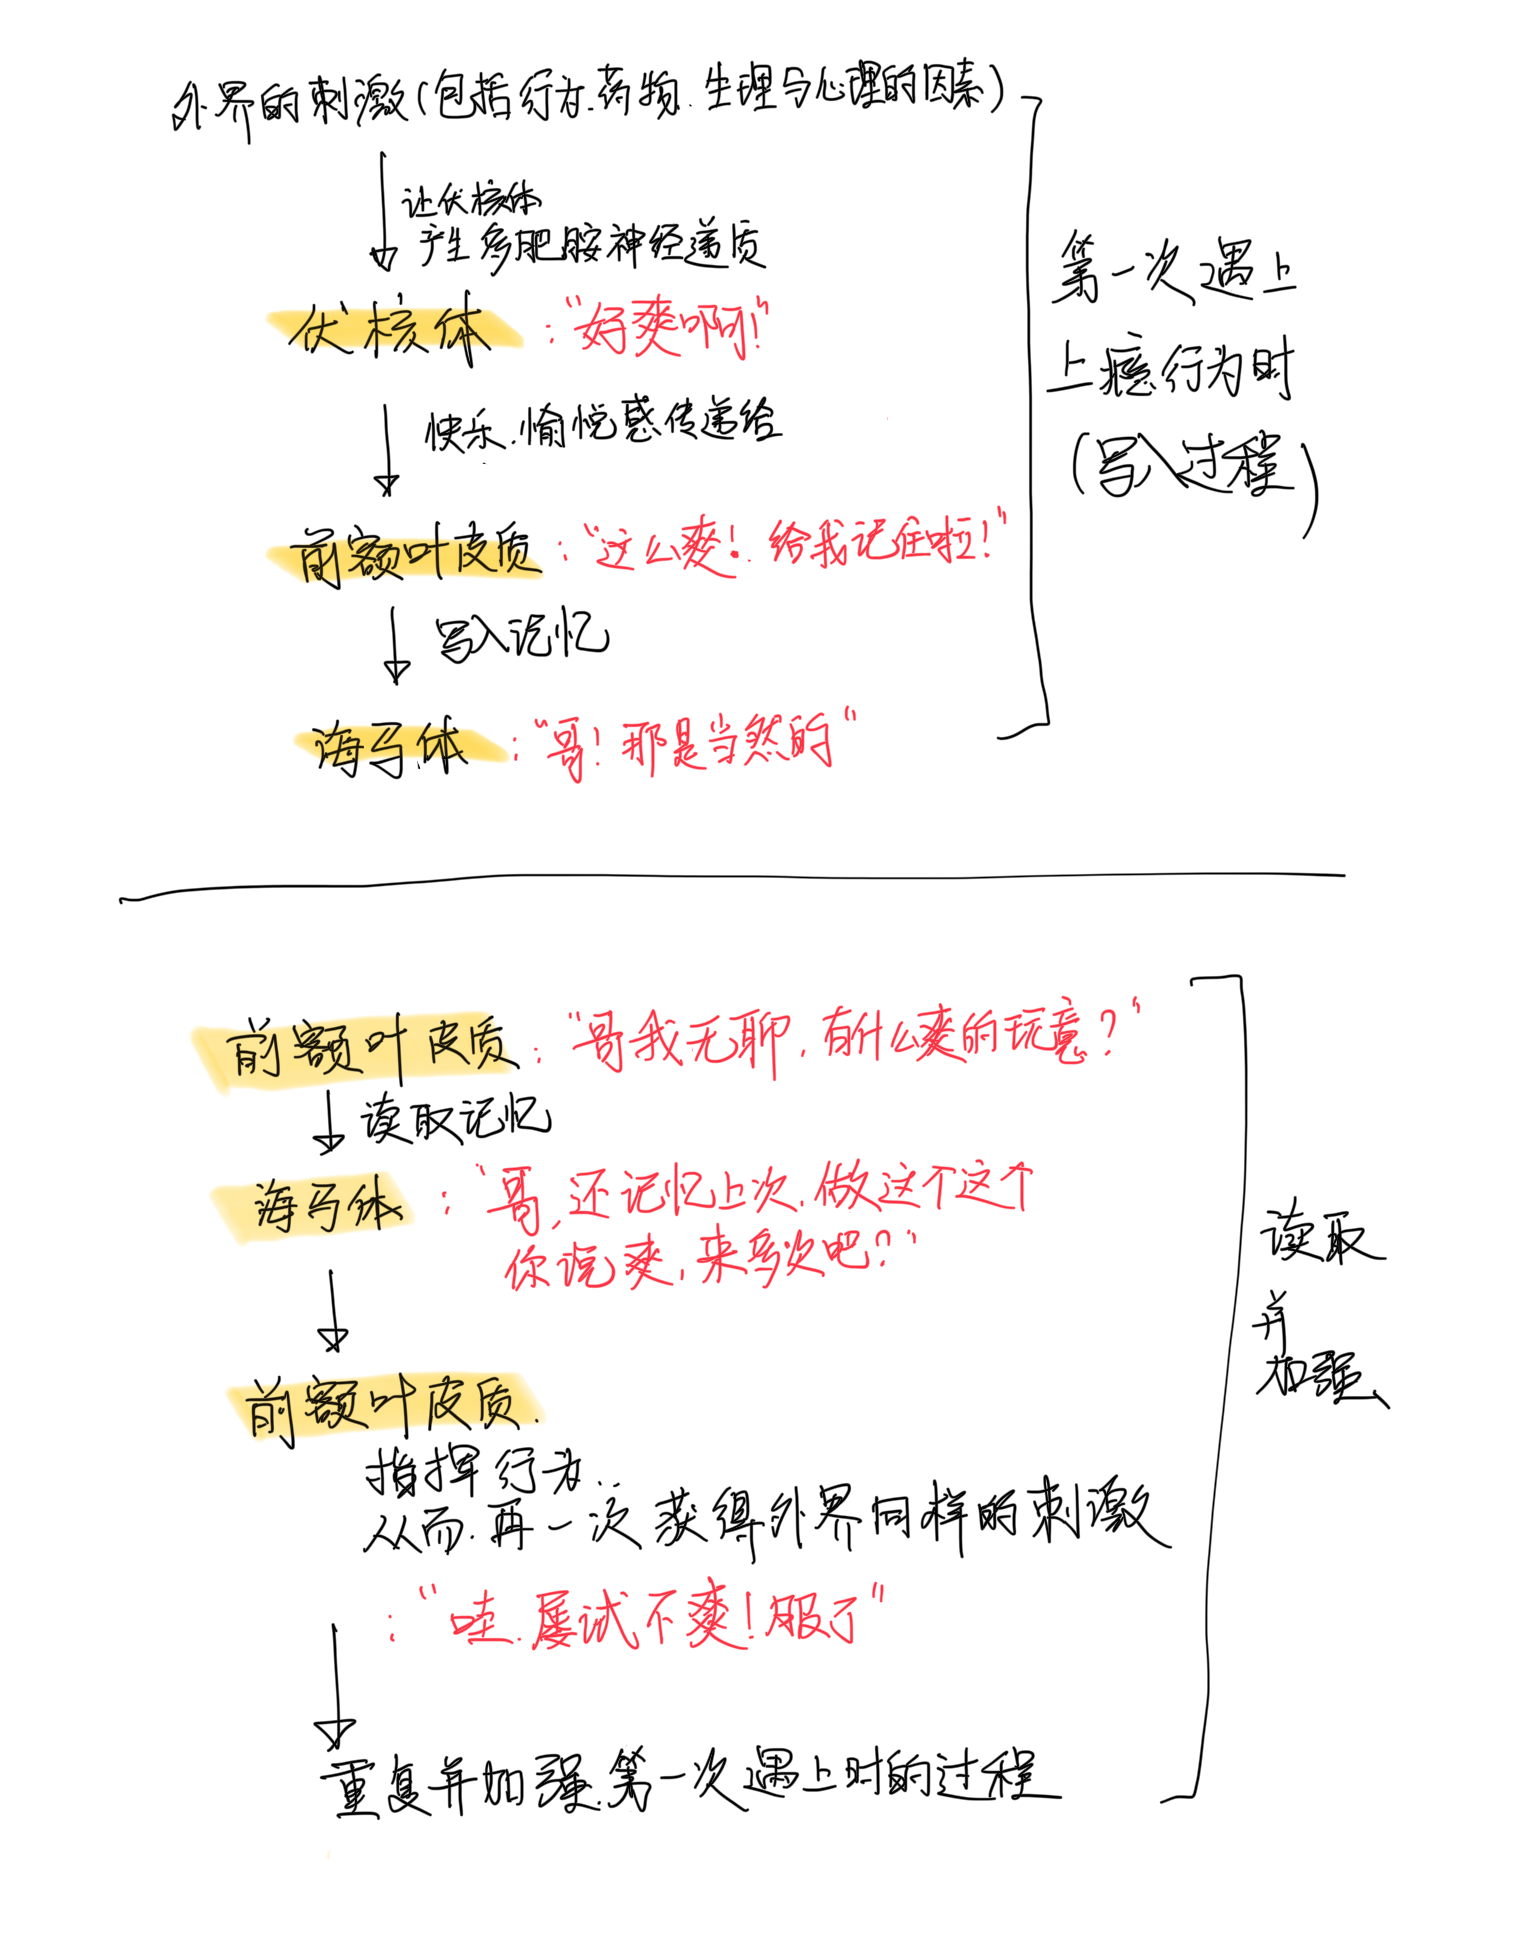 外界的刺激(包括行为.药物.生理与心理的因素)
让伏核体
产生多肥胺神经递质
伏核体:“好爽啊!”
快乐.愉悦感传递给
前额叶皮质:“这么爽!.给我记住啦!”
写入记忆
海马体:“哥!那是当然的”
第一次遇上
上瘾行为时
(写入过程)
前额叶皮质:“哥我无聊.有什么爽的玩意?”
读取记忆
海马体:“哥,还记忆上次.做这个这个
你说爽,来多次吧?”
前额叶皮质.
指挥行为..
从而.再一次获得外界同样的刺激
:“哇.屡试不爽!服了”
重复并加强.第一次遇上时的过程
读取
并
加强、